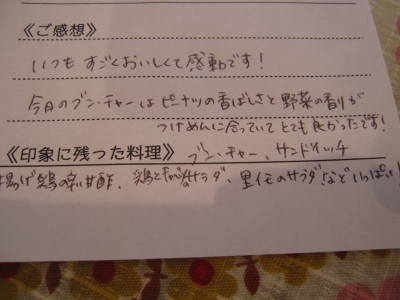 《ご感想》
いつも すごくおいしくて感動です!
今日のブン・チャーはピーナツの香ばしさと野菜の香りが
つけめんに合っていてとても良かったです!
《印象に残った料理》ブン・チャー、サンドイッチ
揚げ鶏の辛い甘酢、鶏と サラダ、里イモのサラダ、などいっぱい!